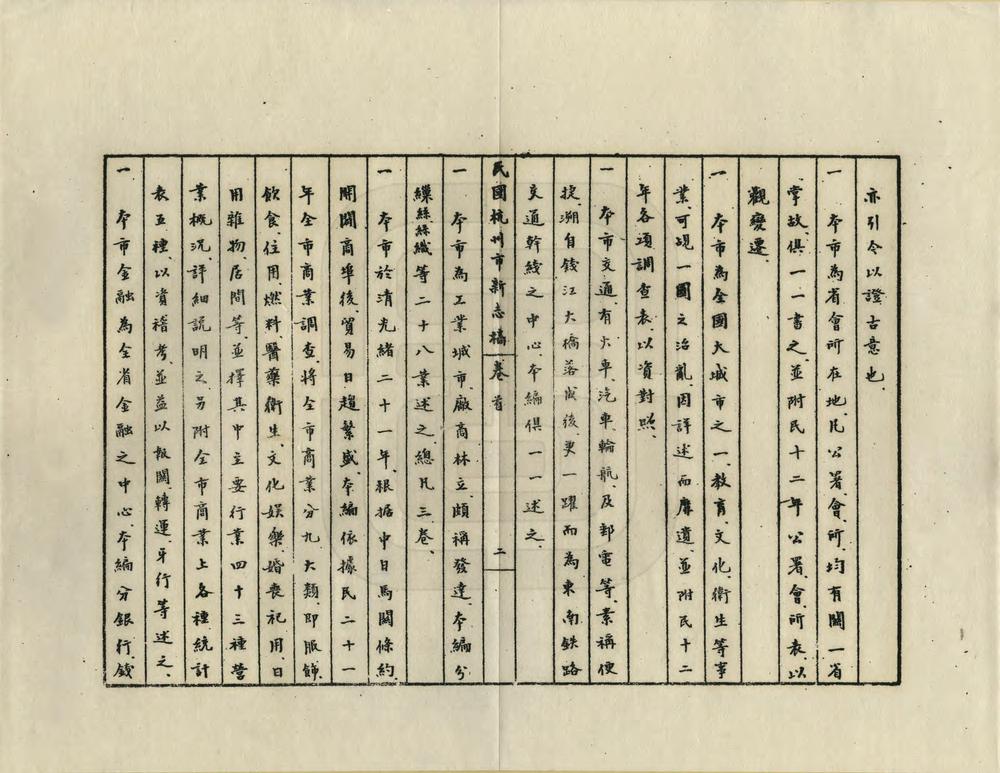 亦引今以證古意也、
一 本市為省會所在地、凡公署、會所、均有關一省
掌故、俱一一書之、並附民十二年公署、會所表以
觀變遷、
一 本市為全國大城市之一、教育、文化、衛生等事
業、可覘一國之治亂、因詳述而靡遺、並附民十二
年各項調查表、以資對照、
一 本市交通、有火車、汽車、輪航、及郵電等、素稱便
捷、溯自錢江大橋落成後、更一躍而為東南鉄路
交通幹綫之中心、本編俱一一述之、
民國杭州市新志稿 卷首 二
一 本市為工業城市、廠商林立、頗稱發達、本編分
繅絲絲織等二十八業述之、總凡三卷、
一 本市於清光緒二十一年、根據中日馬關條約、
開闢商埠後、貿易日趨繁盛、本編依據民二十一
年全市商業調查、將全市商業分九大類、即服飾、
飲食、住用、燃料、醫藥衛生、文化娛樂、婚喪祀用、日
用雜物、居間等、並擇其中主要行業四十三種營
業概況、詳細說明之、另附全市商業上各種統計
表五種、以資稽考、並益以報關、轉運、牙行等述之、
一 本市金融為全省金融之中心、本編分銀行、錢